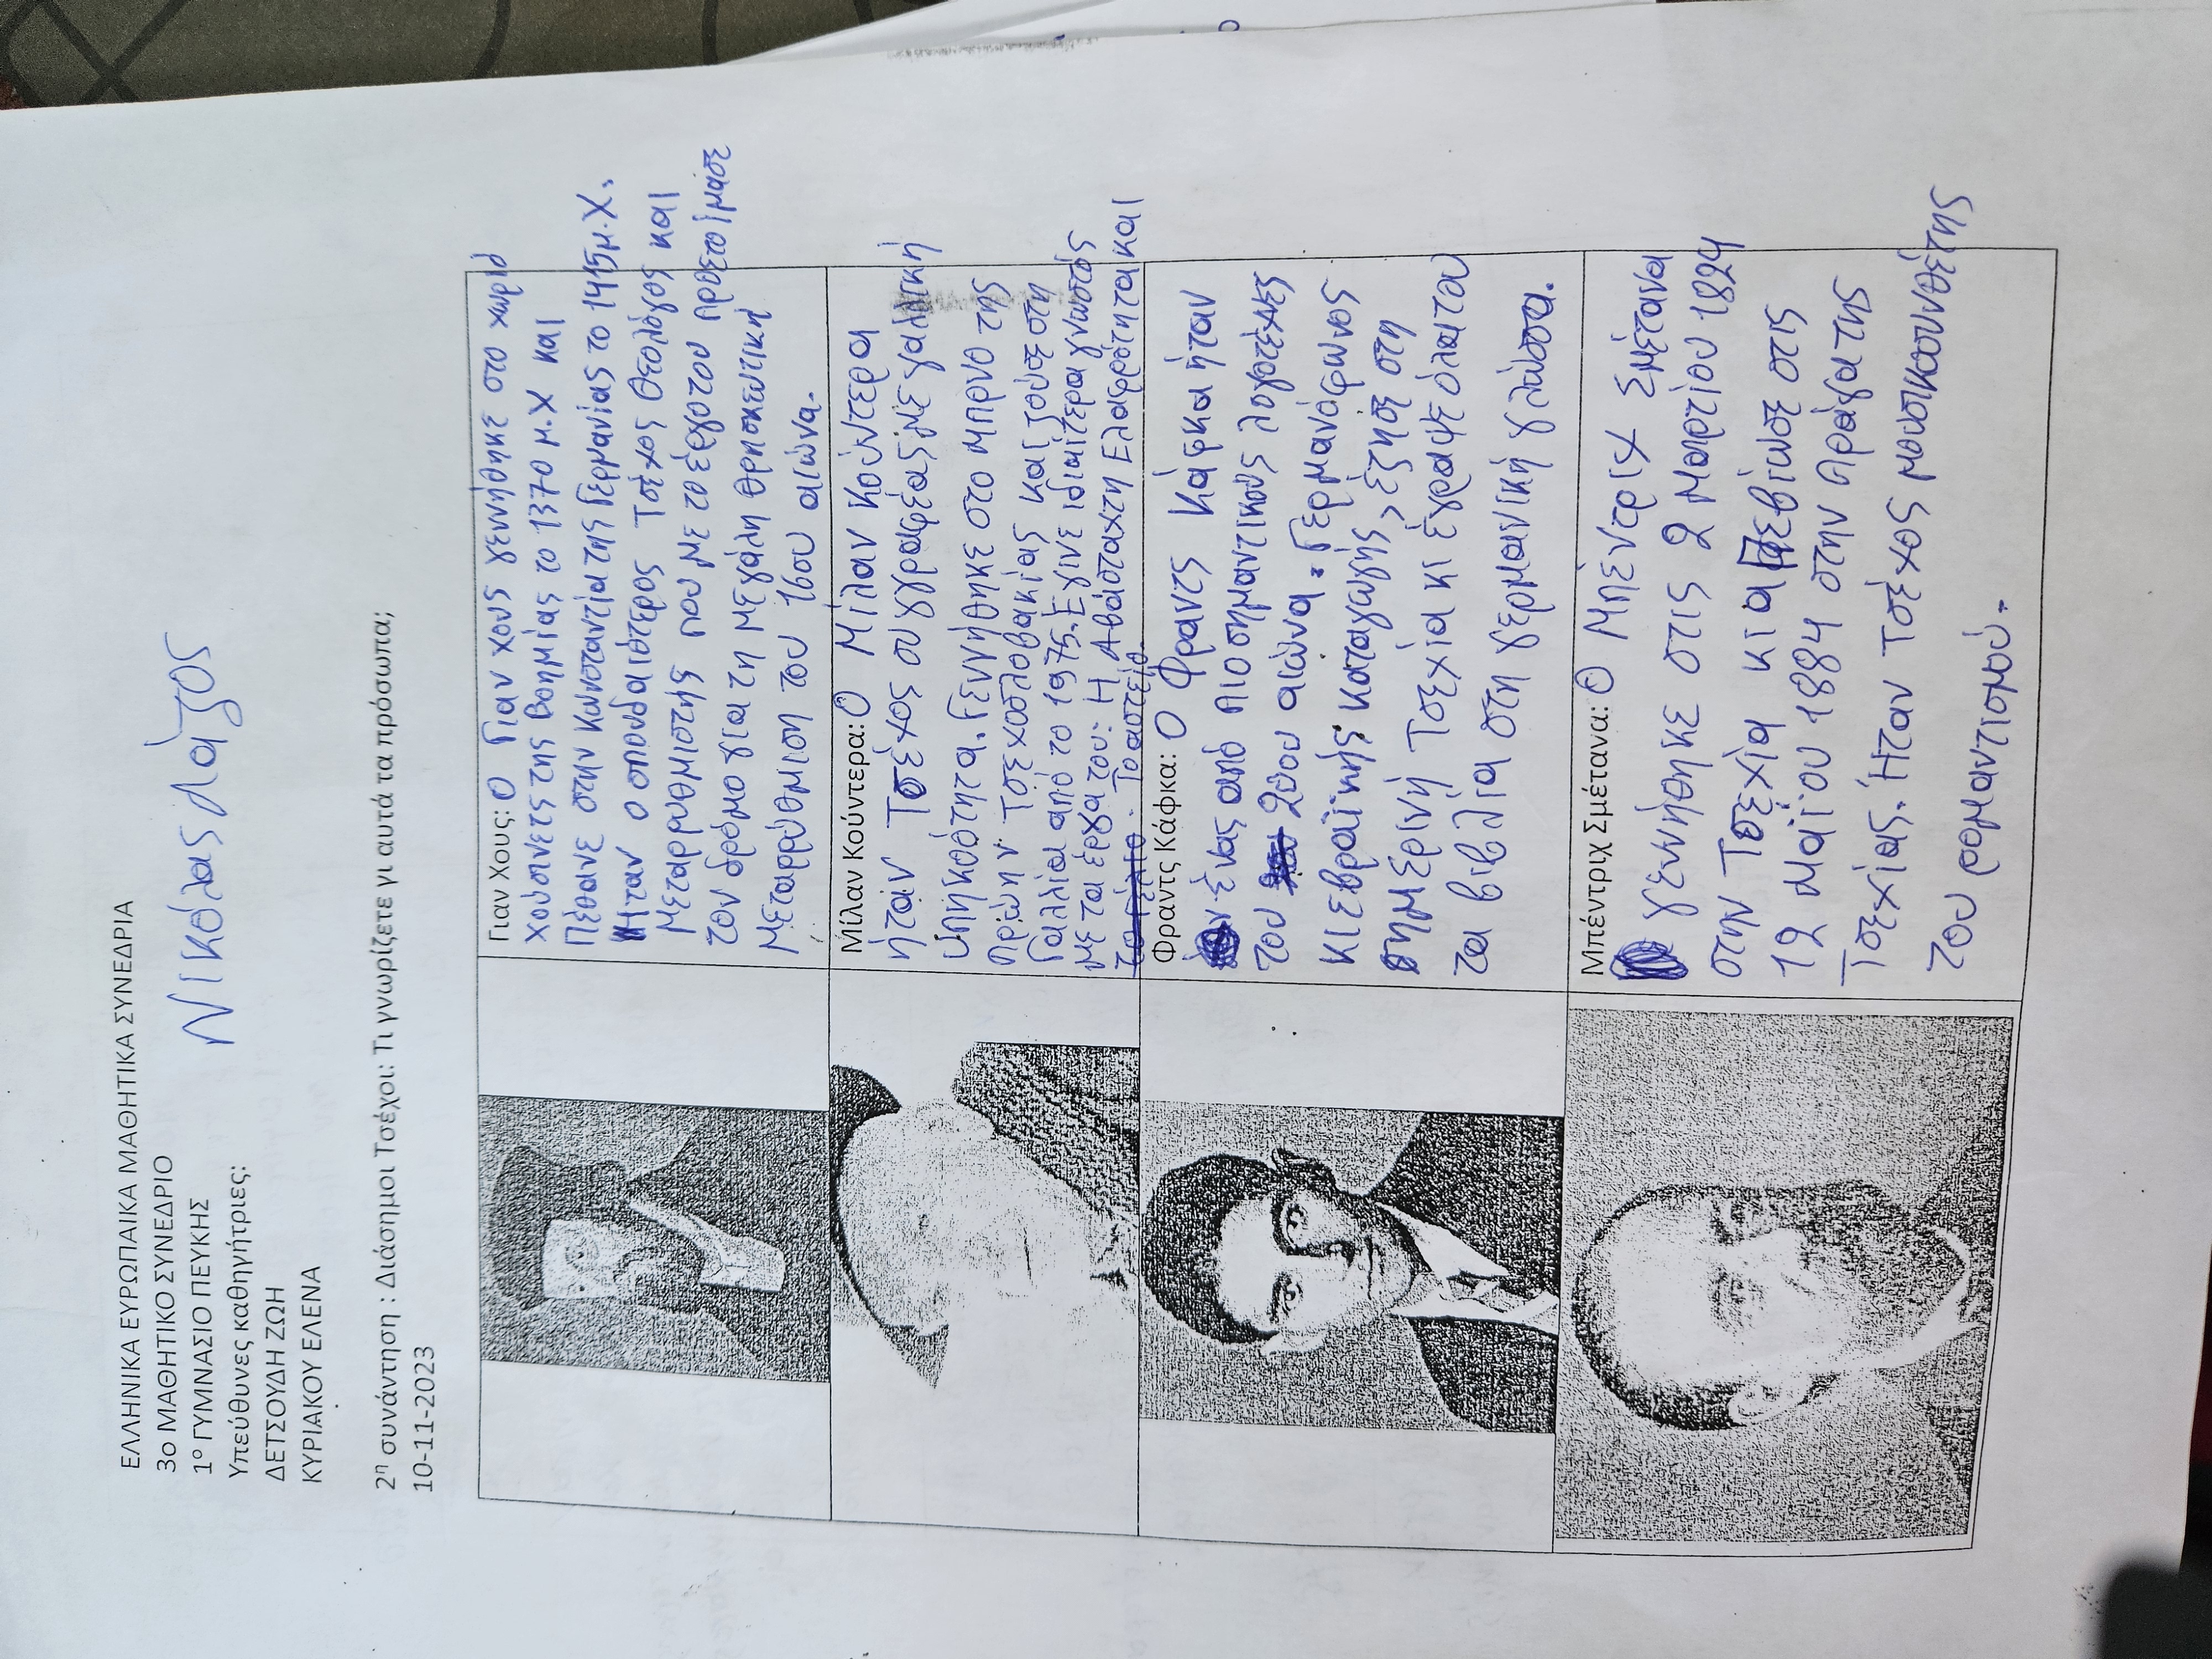 ΕΛΛΗΝΙΚΑ ΕΥΡΩΠΑΙΚΑ ΜΑΘΗΤΙΚΑ ΣΥΝΕΔΡΙΑ
3ο ΜΑΘΗΤΙΚΟ ΣΥΝΕΔΡΙΟ
1º ΓΥΜΝΑΣΙΟ ΠΕΥΚΗΣ
Νικόλας Λάζος
Υπεύθυνες καθηγήτριες:
ΔΕΤΣΟΥΔΗ ΖΩΗ
ΚΥΡΙΑΚΟΥ ΕΛΕΝΑ
2η συνάντηση : Διάσημοι Τσέχοι: Τι γνωρίζετε γι αυτά τα πρόσωπα;
10-11-2023
Γιαν Χους: Ο Γιαν Χους γεννήθηκε στο χωριό
Χούσινετς της Βοημίας το 1370 μ.Χ και
πέθανε στην Κωνσταντία της Γερμανίας το 1415 μ.Χ.
Ήταν ο σπουδαιότερος Τσέχος θεολόγος και
μεταρρυθμιστής που με το έργο του προετοίμασε
τον δρόμο για τη μεγάλη θρησκευτική
μεταρρύθμιση του 16ου αιώνα.
Μίλαν Κούντερα: Ο Μίλαν Κούντερα
ήταν Τσέχος συγγραφέας με γαλλική
υπηκοότητα. Γεννήθηκε στο Μπρνο της
πρώην Τσεχοσλοβακίας και ζούσε στη
Γαλλία από το 1975. Έγινε ιδιαίτερα γνωστός
με τα έργα του: Η Αβάσταχτη Ελαφρότητα και
Το αστείο.
Φραντς Κάφκα: Ο Φραντς Κάφκα ήταν
ένας από πιο σημαντικούς λογοτέχνες
του 20ου αιώνα. Γερμανόφωνος
κι εβραϊκής καταγωγής, έζησε στη
σημερινή Τσεχία κι έγραψε όλα του
τα βιβλία στη γερμανική γλώσσα.
Μπέντριχ Σμέτανα: Ο Μπέντριχ Σμέτανα
γεννήθηκε στις 2 Μαρτίου 1824
στην Τσεχία κι απεβίωσε στις
12 Μαΐου 1884 στην Πράγα της
Τσεχίας. Ήταν Τσέχος μουσικοσυνθέτης
του ρομαντισμού.